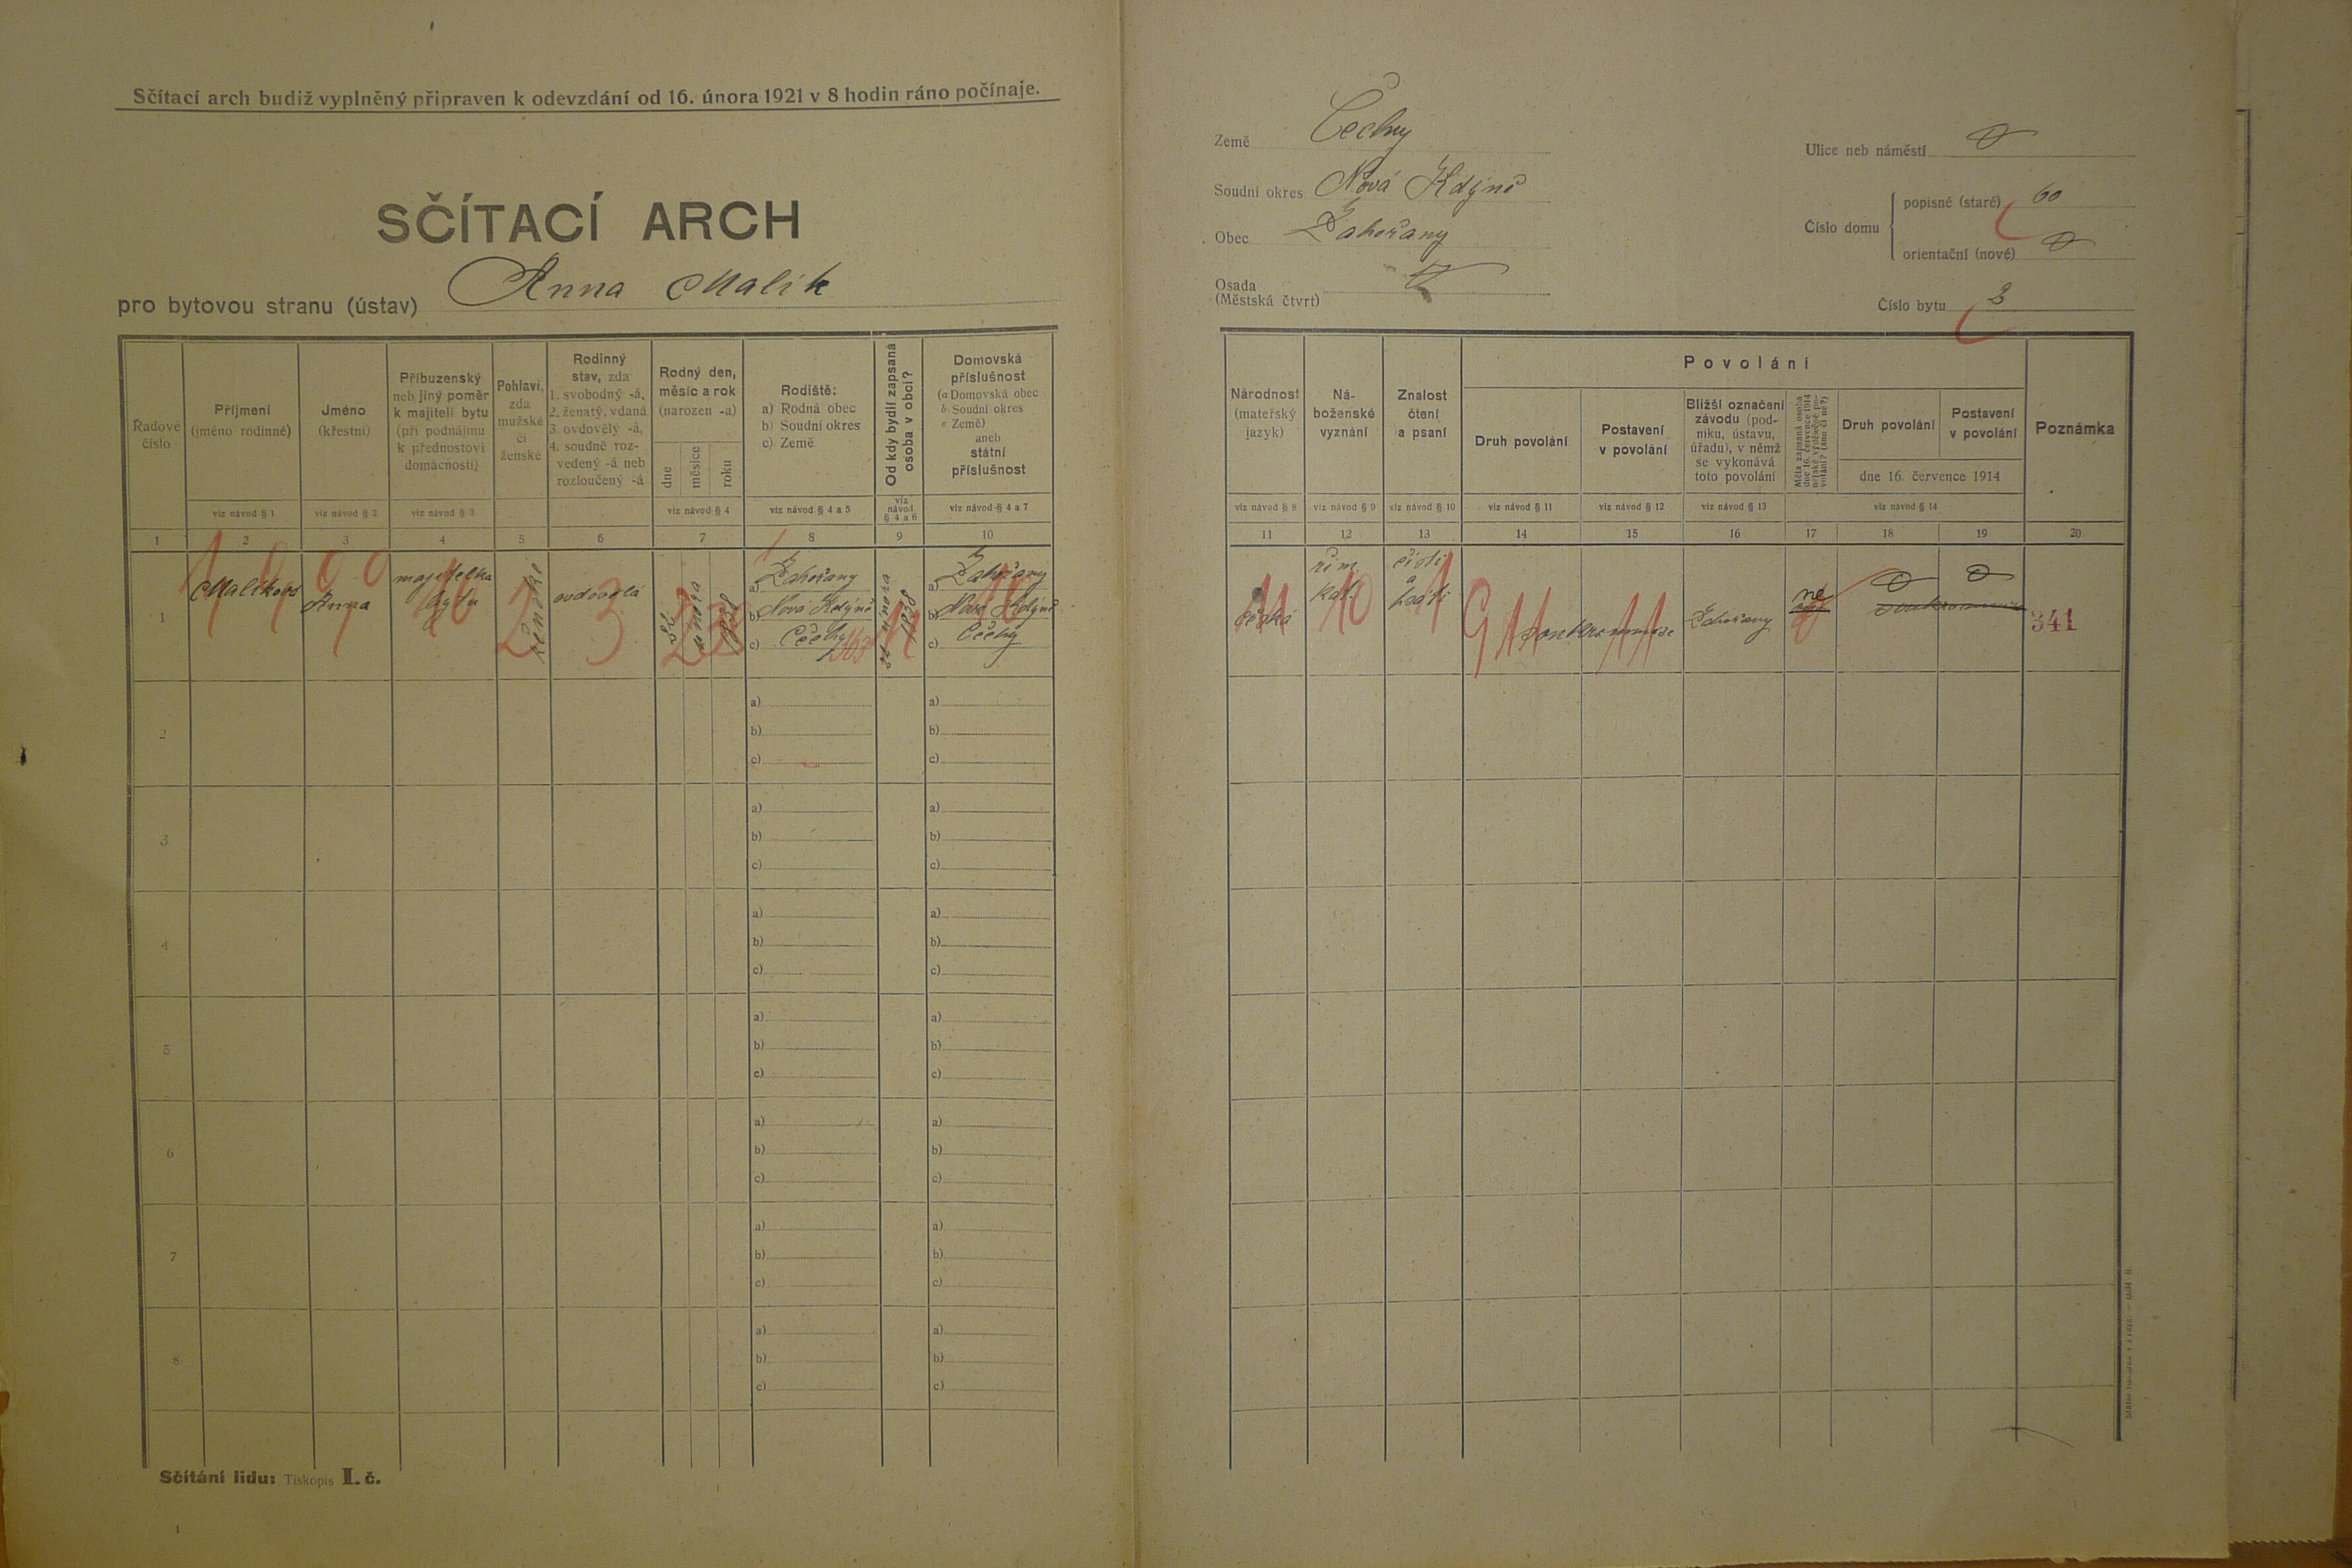 Sčítací arch budiž vyplněný připraven k odevzdání od 16. února 1921 v 8 hodin ráno počínaje.
SČÍTACÍ ARCH
pro bytovou stranu (ústav) Anna Malik
Země Čechy
Soudní okres Nová Kdýně
Obec Zahořany
Osada
(Městská čtvrt)
Ulice neb náměstí
Číslo domu
popisné (staré) 60
orientační (nové)
Číslo bytu 3
Řadové
číslo
Příjmení
(jméno rodinné)
viz návod § 1
Jméno
(křestní)
viz návod § 2
Příbuzenský
neb jiný poměr
k majiteli bytu
(při podnájmu
k přednostovi
domácnosti)
viz návod § 3
Pohlaví,
zda
mužské
či
ženské
Rodinný
stav, zda
1. svobodný -á,
2. ženatý, vdaná
3. ovdovělý -á,
4. soudně roz-
vedený -á neb
rozloučený -á
Rodný den,
měsíc a rok
(narozen -a)
dne
měsíce
roku
viz návod § 4
Rodiště:
a) Rodná obec
b) Soudní okres
c) Země
viz návod § 4 a 5
Od kdy bydlí zapsaná
osoba v obci?
viz
návod
§ 4 a 6
Domovská
příslušnost
(a Domovská obec
b Soudní okres
c Země)
aneb
státní
příslušnost
viz návod § 4 a 7
Národnost
(mateřský
jazyk)
viz návod § 8
Ná-
boženské
vyznání
viz návod § 9
Znalost
čtení
a psaní
viz návod § 10
Povolání
Druh povolání
viz návod § 11
Postavení
v povolání
viz návod § 12
Bližší označení
závodu (pod-
niku, ústavu,
úřadu), v němž
se vykonává
toto povolání
viz návod § 13
Měla zapsaná osoba
dne 16. července 1914
nějaké výdělečné po-
volání? (ano či ne?)
Druh povolání
Postavení
v povolání
dne 16. července 1914
viz návod § 14
Poznámka
1 2 3 4 5 6 7 8 9 10
11 12 13 14 15 16 17 18 19 20
1
Malíková
Anna
majitelka
bytu
ženské
ovdovělá
února
1838
a) Zahořany
b) Nová Kdýně
c) Čechy
února
1838
a) Zahořany
b) Nová Kdýně
c) Čechy
česká
řím.
kat.
čísti
a
psáti
Zahořany
ne
341
2
a)
b)
c)
a)
b)
c)
3
a)
b)
c)
a)
b)
c)
4
a)
b)
c)
a)
b)
c)
5
a)
b)
c)
a)
b)
c)
6
a)
b)
c)
a)
b)
c)
7
a)
b)
c)
a)
b)
c)
8
a)
b)
c)
a)
b)
c)
Sčítání lidu: Tiskopis I. č.